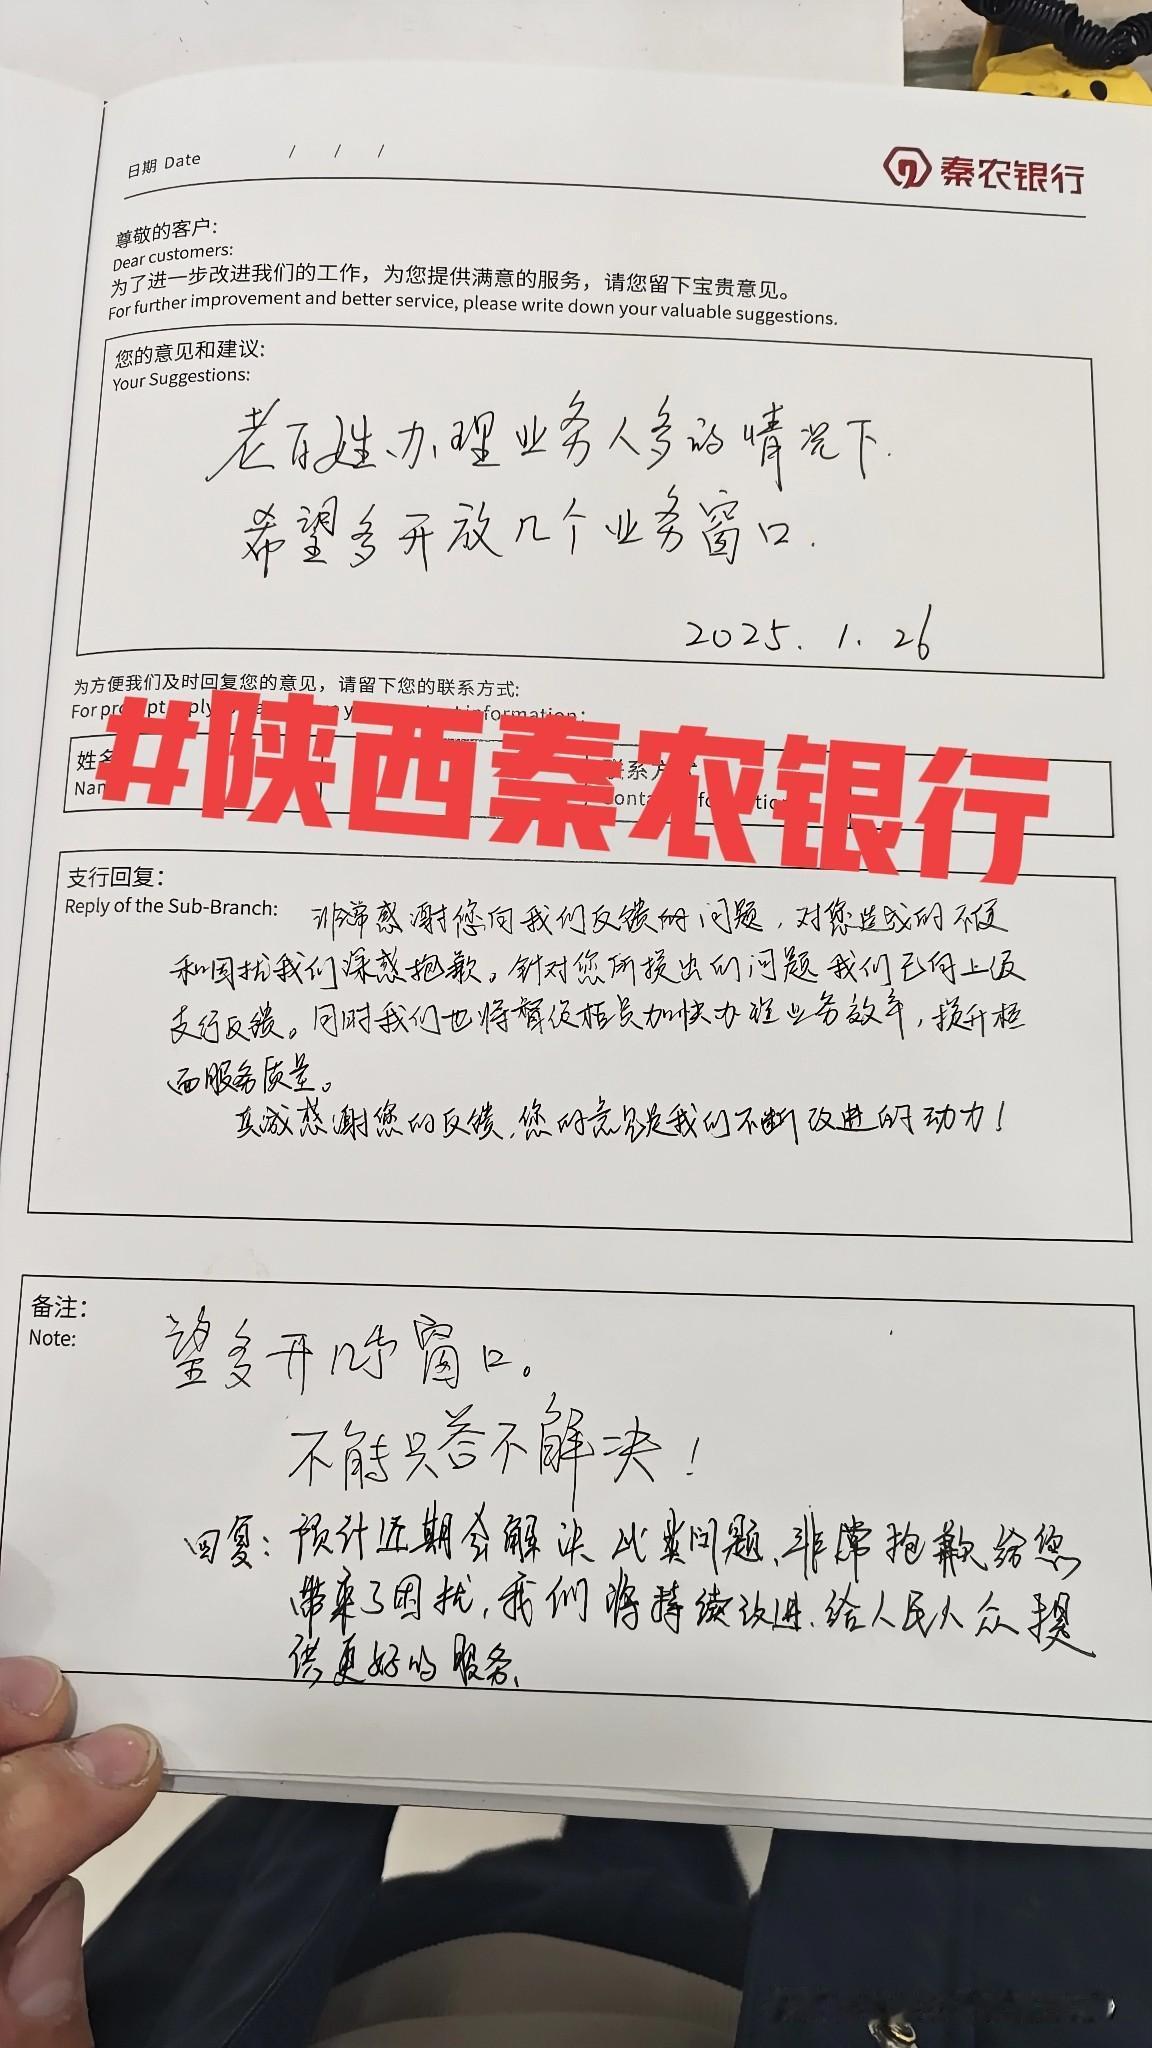 日期 Date / / /
秦农银行
尊敬的客户:
Dear customers:
为了进一步改进我们的工作，为您提供满意的服务，请您留下宝贵意见。
For further improvement and better service, please write down your valuable suggestions.
您的意见和建议:
Your Suggestions:
老百姓办理业务人多的情况下.
希望多开放几个业务窗口.
2025. 1. 26
为方便我们及时回复您的意见，请留下您的联系方式:
For information:
#陕西秦农银行
支行回复:
Reply of the Sub-Branch: 非常感谢您向我们反馈的问题，对您造成的不便
和困扰我们深感抱歉。针对您所提出的问题我们已向上级
支行反馈。同时我们也将督促柜员加快办理业务效率，提升柜
面服务质量。
真诚感谢您的反馈，您的意见是我们不断改进的动力！
备注:
Note:
望多开几个窗口。
不能只答不解决！
回复：预计近期会解决此类问题、非常抱歉给您
带来了困扰，我们将持续改进、给人民大众提
供更好的服务、